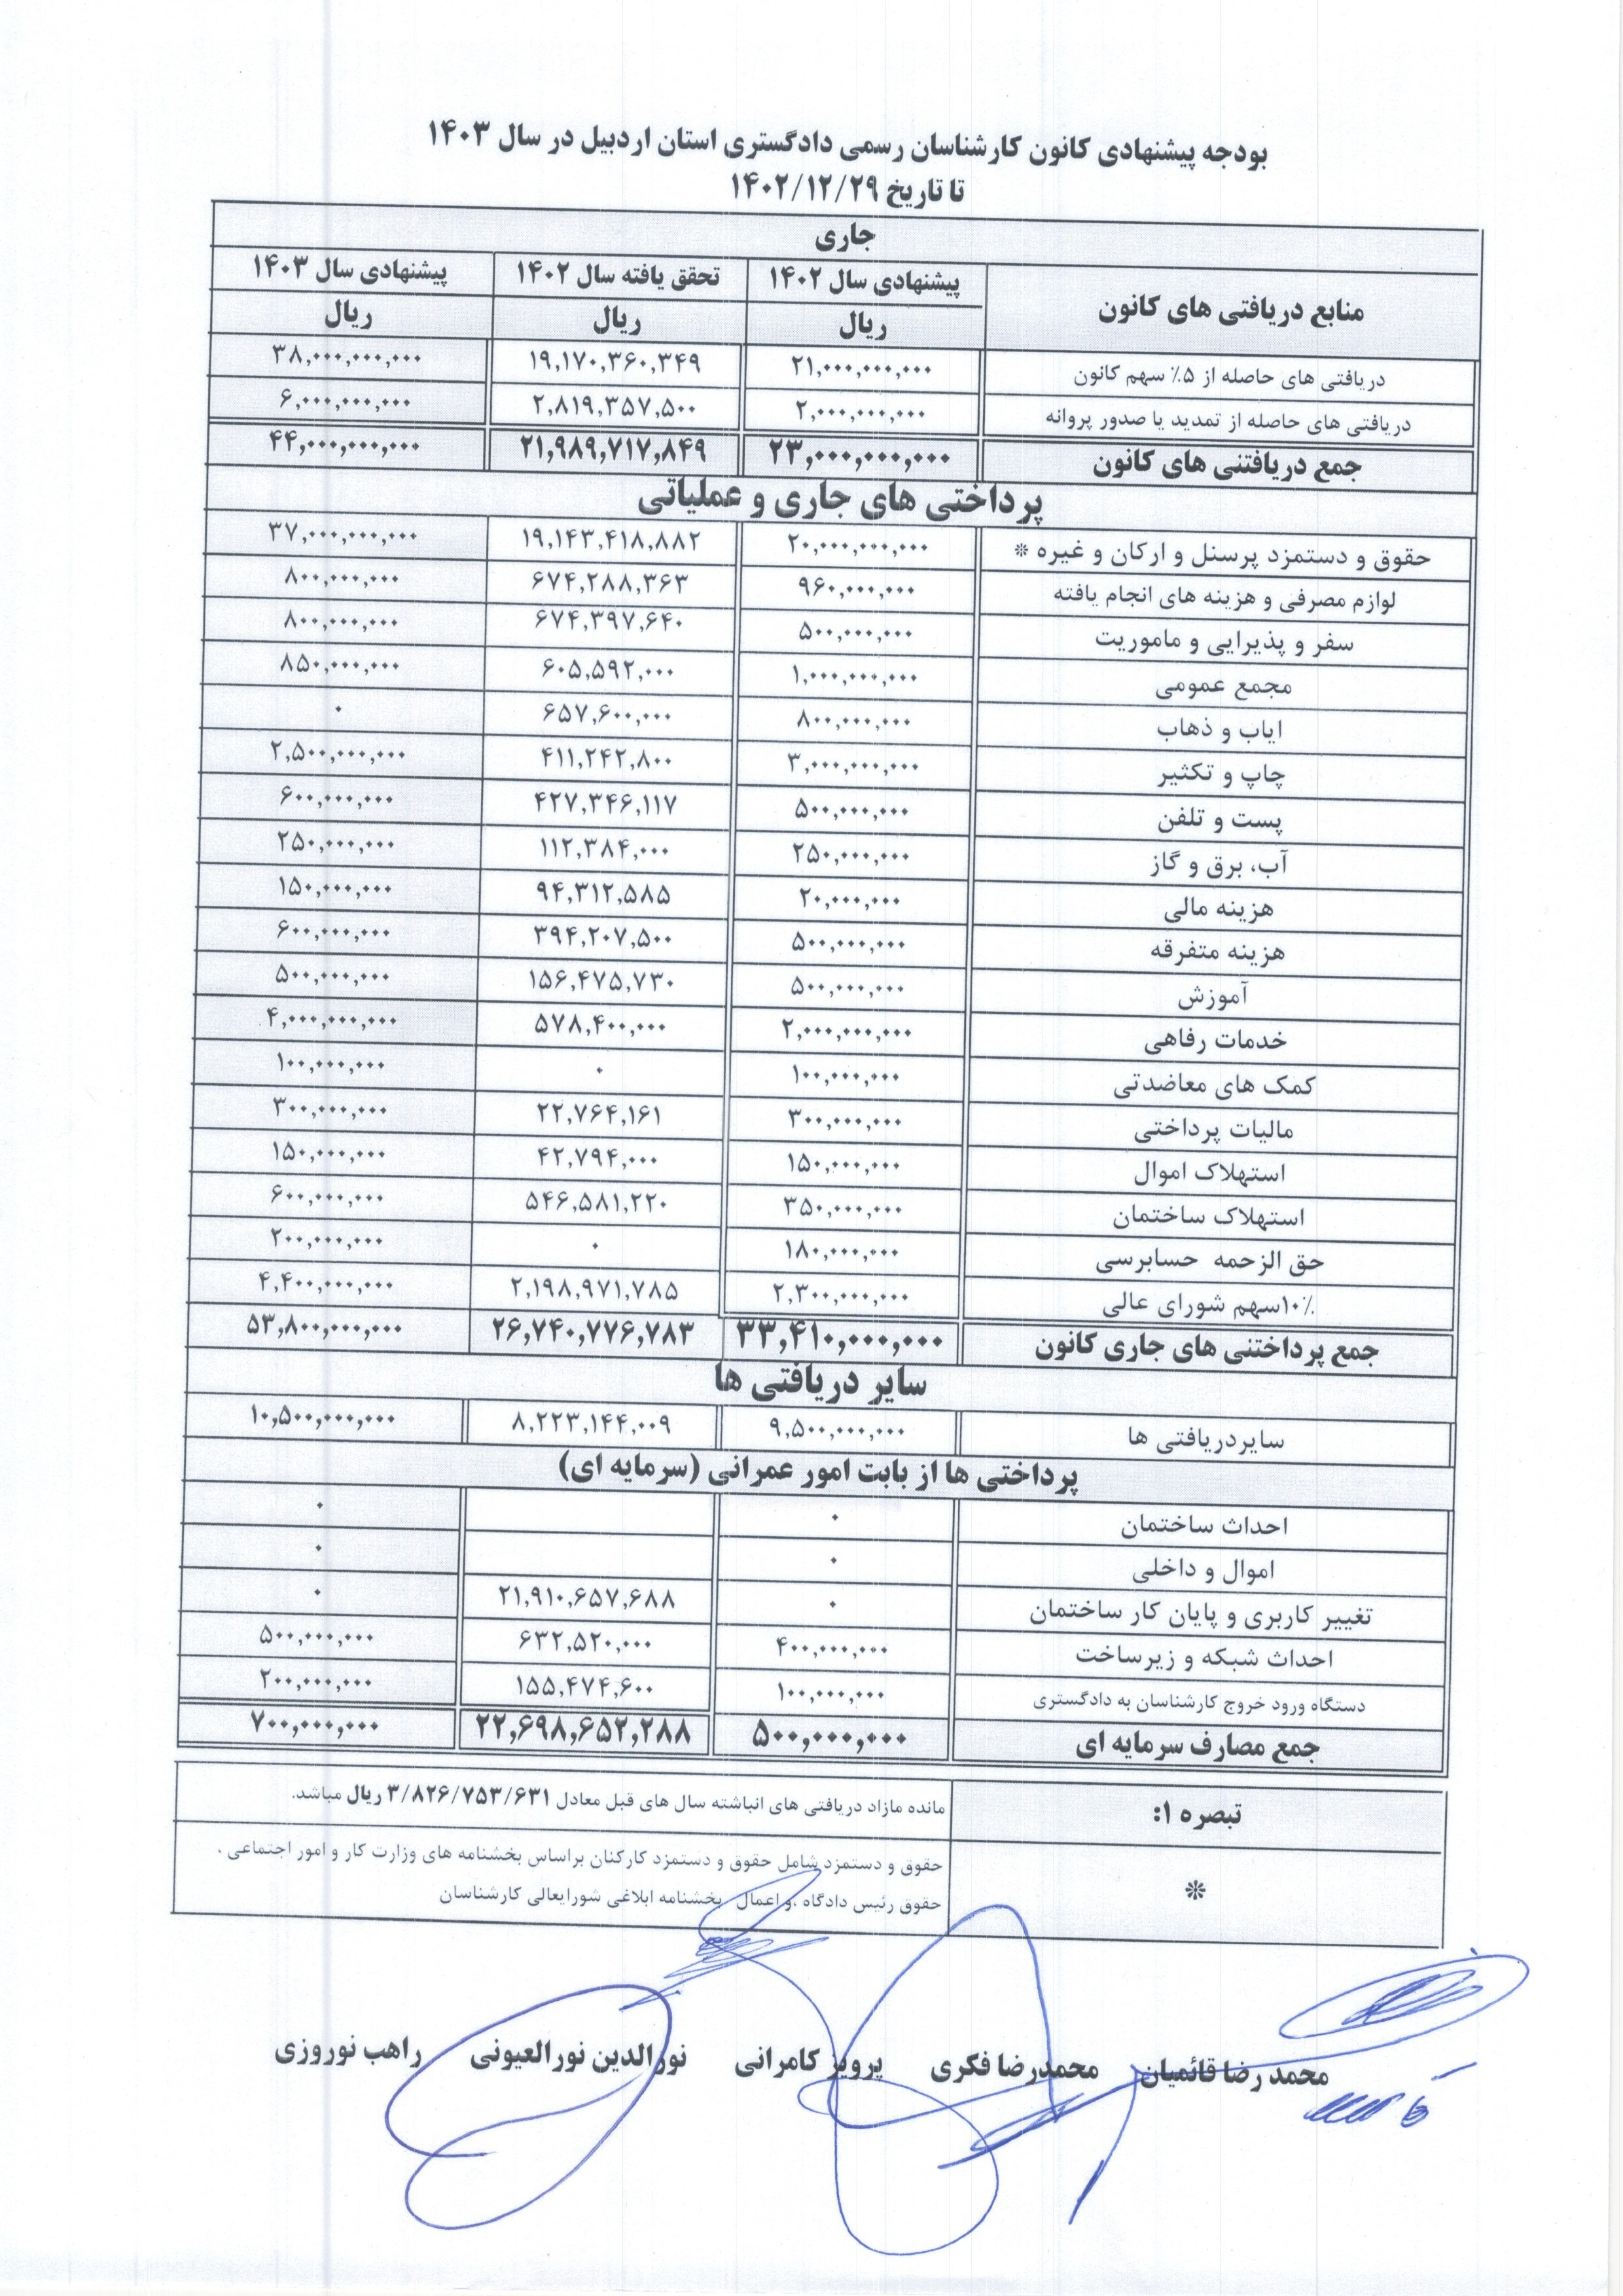 بودجه پیشنهادی کانون کارشناسان رسمی دادگستری استان اردبیل در سال ۱۴۰۳
تا تاریخ ۱۴۰۲/۱۲/۲۹
جاری
منابع دریافتی های کانون پیشنهادی سال ۱۴۰۲ تحقق یافته سال ۱۴۰۲ پیشنهادی سال ۱۴۰۳
ریال ریال ریال
دریافتی های حاصله از ۵٪ سهم کانون ۲۱,۰۰۰,۰۰۰,۰۰۰ ۱۹,۱۷۰,۳۶۰,۳۴۹ ۳۸,۰۰۰,۰۰۰,۰۰۰
دریافتی های حاصله از تمدید یا صدور پروانه ۲,۰۰۰,۰۰۰,۰۰۰ ۲,۸۱۹,۳۵۷,۵۰۰ ۶,۰۰۰,۰۰۰,۰۰۰
جمع دریافتنی های کانون ۲۳,۰۰۰,۰۰۰,۰۰۰ ۲۱,۹۸۹,۷۱۷,۸۴۹ ۴۴,۰۰۰,۰۰۰,۰۰۰
پرداختی های جاری و عملیاتی
حقوق و دستمزد پرسنل و ارکان و غیره * ۲۰,۰۰۰,۰۰۰,۰۰۰ ۱۹,۱۴۳,۴۱۸,۸۸۲ ۳۷,۰۰۰,۰۰۰,۰۰۰
لوازم مصرفی و هزینه های انجام یافته ۹۶۰,۰۰۰,۰۰۰ ۶۷۴,۲۸۸,۳۶۳ ۸۰۰,۰۰۰,۰۰۰
سفر و پذیرایی و ماموریت ۵۰۰,۰۰۰,۰۰۰ ۶۷۴,۳۹۷,۶۴۰ ۸۰۰,۰۰۰,۰۰۰
مجمع عمومی ۱,۰۰۰,۰۰۰,۰۰۰ ۶۰۵,۵۹۲,۰۰۰ ۸۵۰,۰۰۰,۰۰۰
ایاب و ذهاب ۸۰۰,۰۰۰,۰۰۰ ۶۵۷,۶۰۰,۰۰۰ ۰
چاپ و تکثیر ۳,۰۰۰,۰۰۰,۰۰۰ ۴۱۱,۲۴۲,۸۰۰ ۲,۵۰۰,۰۰۰,۰۰۰
پست و تلفن ۵۰۰,۰۰۰,۰۰۰ ۴۲۷,۳۴۶,۱۱۷ ۶۰۰,۰۰۰,۰۰۰
آب، برق و گاز ۲۵۰,۰۰۰,۰۰۰ ۱۱۲,۳۸۴,۰۰۰ ۲۵۰,۰۰۰,۰۰۰
هزینه مالی ۲۰,۰۰۰,۰۰۰ ۹۴,۳۱۲,۵۸۵ ۱۵۰,۰۰۰,۰۰۰
هزینه متفرقه ۵۰۰,۰۰۰,۰۰۰ ۳۹۴,۲۰۷,۵۰۰ ۶۰۰,۰۰۰,۰۰۰
آموزش ۵۰۰,۰۰۰,۰۰۰ ۱۵۶,۴۷۵,۷۳۰ ۵۰۰,۰۰۰,۰۰۰
خدمات رفاهی ۲,۰۰۰,۰۰۰,۰۰۰ ۵۷۸,۴۰۰,۰۰۰ ۴,۰۰۰,۰۰۰,۰۰۰
کمک های معاضدتی ۱۰۰,۰۰۰,۰۰۰ ۰ ۱۰۰,۰۰۰,۰۰۰
مالیات پرداختی ۳۰۰,۰۰۰,۰۰۰ ۲۲,۷۶۴,۱۶۱ ۳۰۰,۰۰۰,۰۰۰
استهلاک اموال ۱۵۰,۰۰۰,۰۰۰ ۴۲,۷۹۴,۰۰۰ ۱۵۰,۰۰۰,۰۰۰
استهلاک ساختمان ۳۵۰,۰۰۰,۰۰۰ ۵۴۶,۵۸۱,۲۲۰ ۶۰۰,۰۰۰,۰۰۰
حق الزحمه حسابرسی ۱۸۰,۰۰۰,۰۰۰ ۰ ۲۰۰,۰۰۰,۰۰۰
۱۰٪سهم شورای عالی ۲,۳۰۰,۰۰۰,۰۰۰ ۲,۱۹۸,۹۷۱,۷۸۵ ۴,۴۰۰,۰۰۰,۰۰۰
جمع پرداختنی های جاری کانون ۳۳,۴۱۰,۰۰۰,۰۰۰ ۲۶,۷۴۰,۷۷۶,۷۸۳ ۵۳,۸۰۰,۰۰۰,۰۰۰
سایر دریافتی ها
سایردریافتی ها ۹,۵۰۰,۰۰۰,۰۰۰ ۸,۲۲۳,۱۴۴,۰۰۹ ۱۰,۵۰۰,۰۰۰,۰۰۰
پرداختی ها از بابت امور عمرانی (سرمایه ای)
احداث ساختمان ۰ ۰
اموال و داخلی ۰ ۰
تغییر کاربری و پایان کار ساختمان ۰ ۲۱,۹۱۰,۶۵۷,۶۸۸ ۰
احداث شبکه و زیرساخت ۴۰۰,۰۰۰,۰۰۰ ۶۳۲,۵۲۰,۰۰۰ ۵۰۰,۰۰۰,۰۰۰
دستگاه ورود خروج کارشناسان به دادگستری ۱۰۰,۰۰۰,۰۰۰ ۱۵۵,۴۷۴,۶۰۰ ۲۰۰,۰۰۰,۰۰۰
جمع مصارف سرمایه ای ۵۰۰,۰۰۰,۰۰۰ ۲۲,۶۹۸,۶۵۲,۲۸۸ ۷۰۰,۰۰۰,۰۰۰
تبصره ۱: مانده مازاد دریافتی های انباشته سال های قبل معادل ۳/۸۲۶/۷۵۳/۶۳۱ ریال مباشد.
* حقوق و دستمزد شامل حقوق و دستمزد کارکنان براساس بخشنامه های وزارت کار و امور اجتماعی ،
حقوق رئیس دادگاه ،و اعمال بخشنامه ابلاغی شورایعالی کارشناسان
محمد رضا قائمیان محمدرضا فکری پرویز کامرانی نورالدین نورالعیونی راهب نوروزی